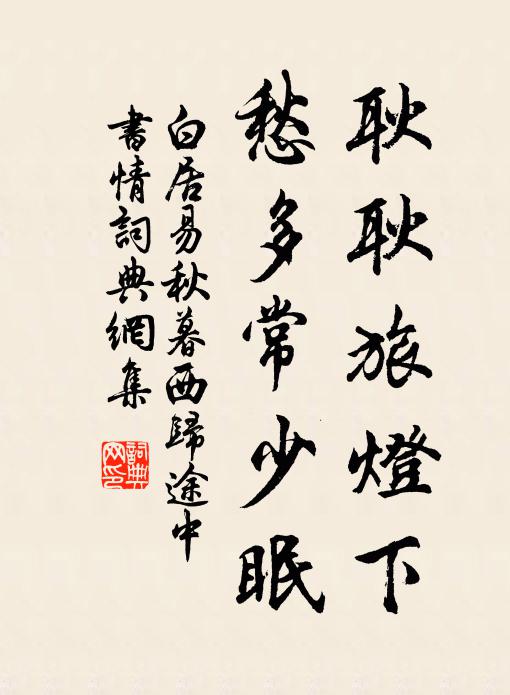 耿耿旅燈下
愁多常少眠
白居易秋暮西歸途中
書情詞典網集
詞典
网印